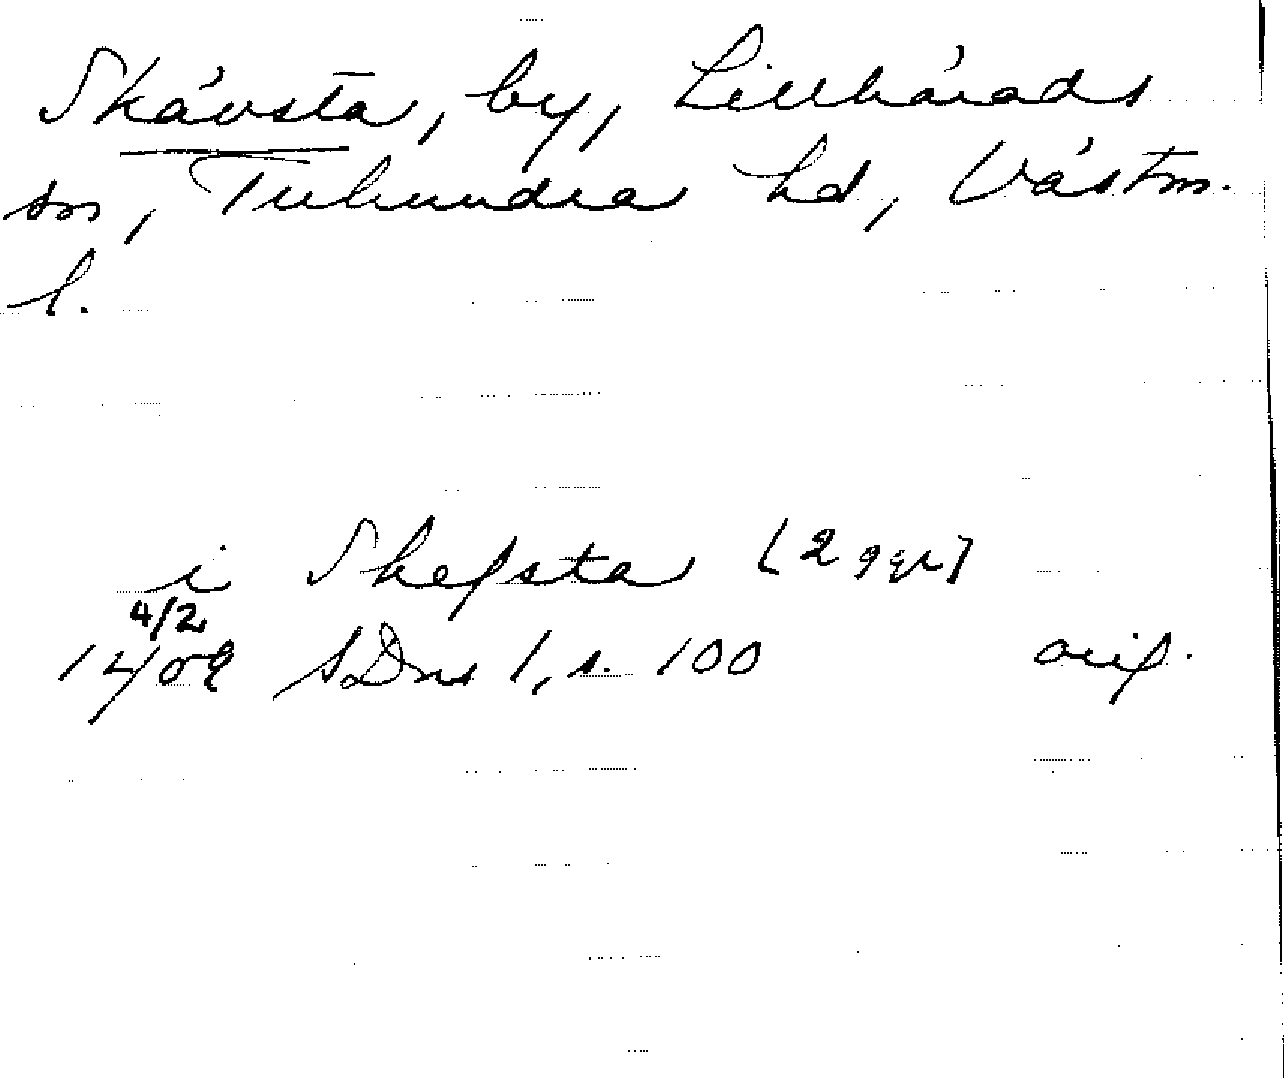 Skävsta, by, Lillhärads
sn, Tuhundra hd, Västm.
l.
i Skefsta [2 ggr]
4/2
1409 SDns 1, s. 100 orig.